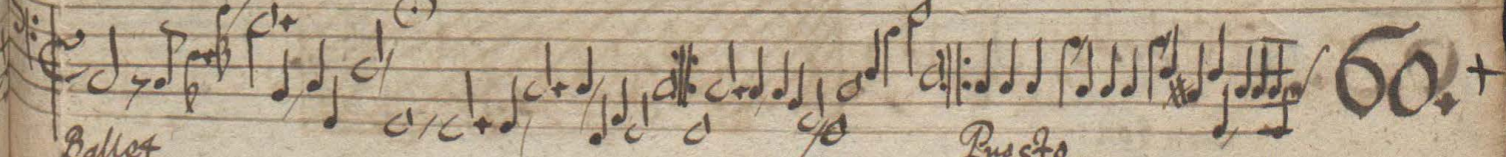 60.
Ballet
Presto